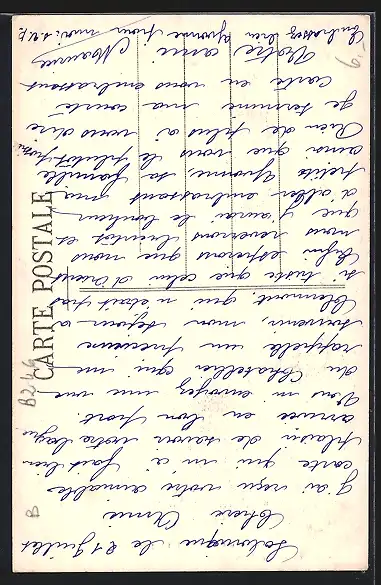 Salonique le 21 Juillet
Chère Amie
J'ai reçu votre aimable
carte qui m'a fait bien
plaisir de savoir votre
arrivée en bon port.
Vous m'envoyez une vue
du Chatellier qui me
rappelle un précieux
souvenir, mon séjour à
Clermont, qui n'était pas
si triste que celui d'Orient
Enfin espérons que nous
nous reverrons bientôt et
que j'aurai le bonheur
d'aller embrasser ma
petite Yvonne, sa famille
ainsi que vous le plutôt
Rien de plus à vous dire
je termine ma courte
carte en vous embrassant
Votre ami
Maurice
Embrassez bien Yvonne pour moi. s.v.p.
CARTE POSTALE
B249
B